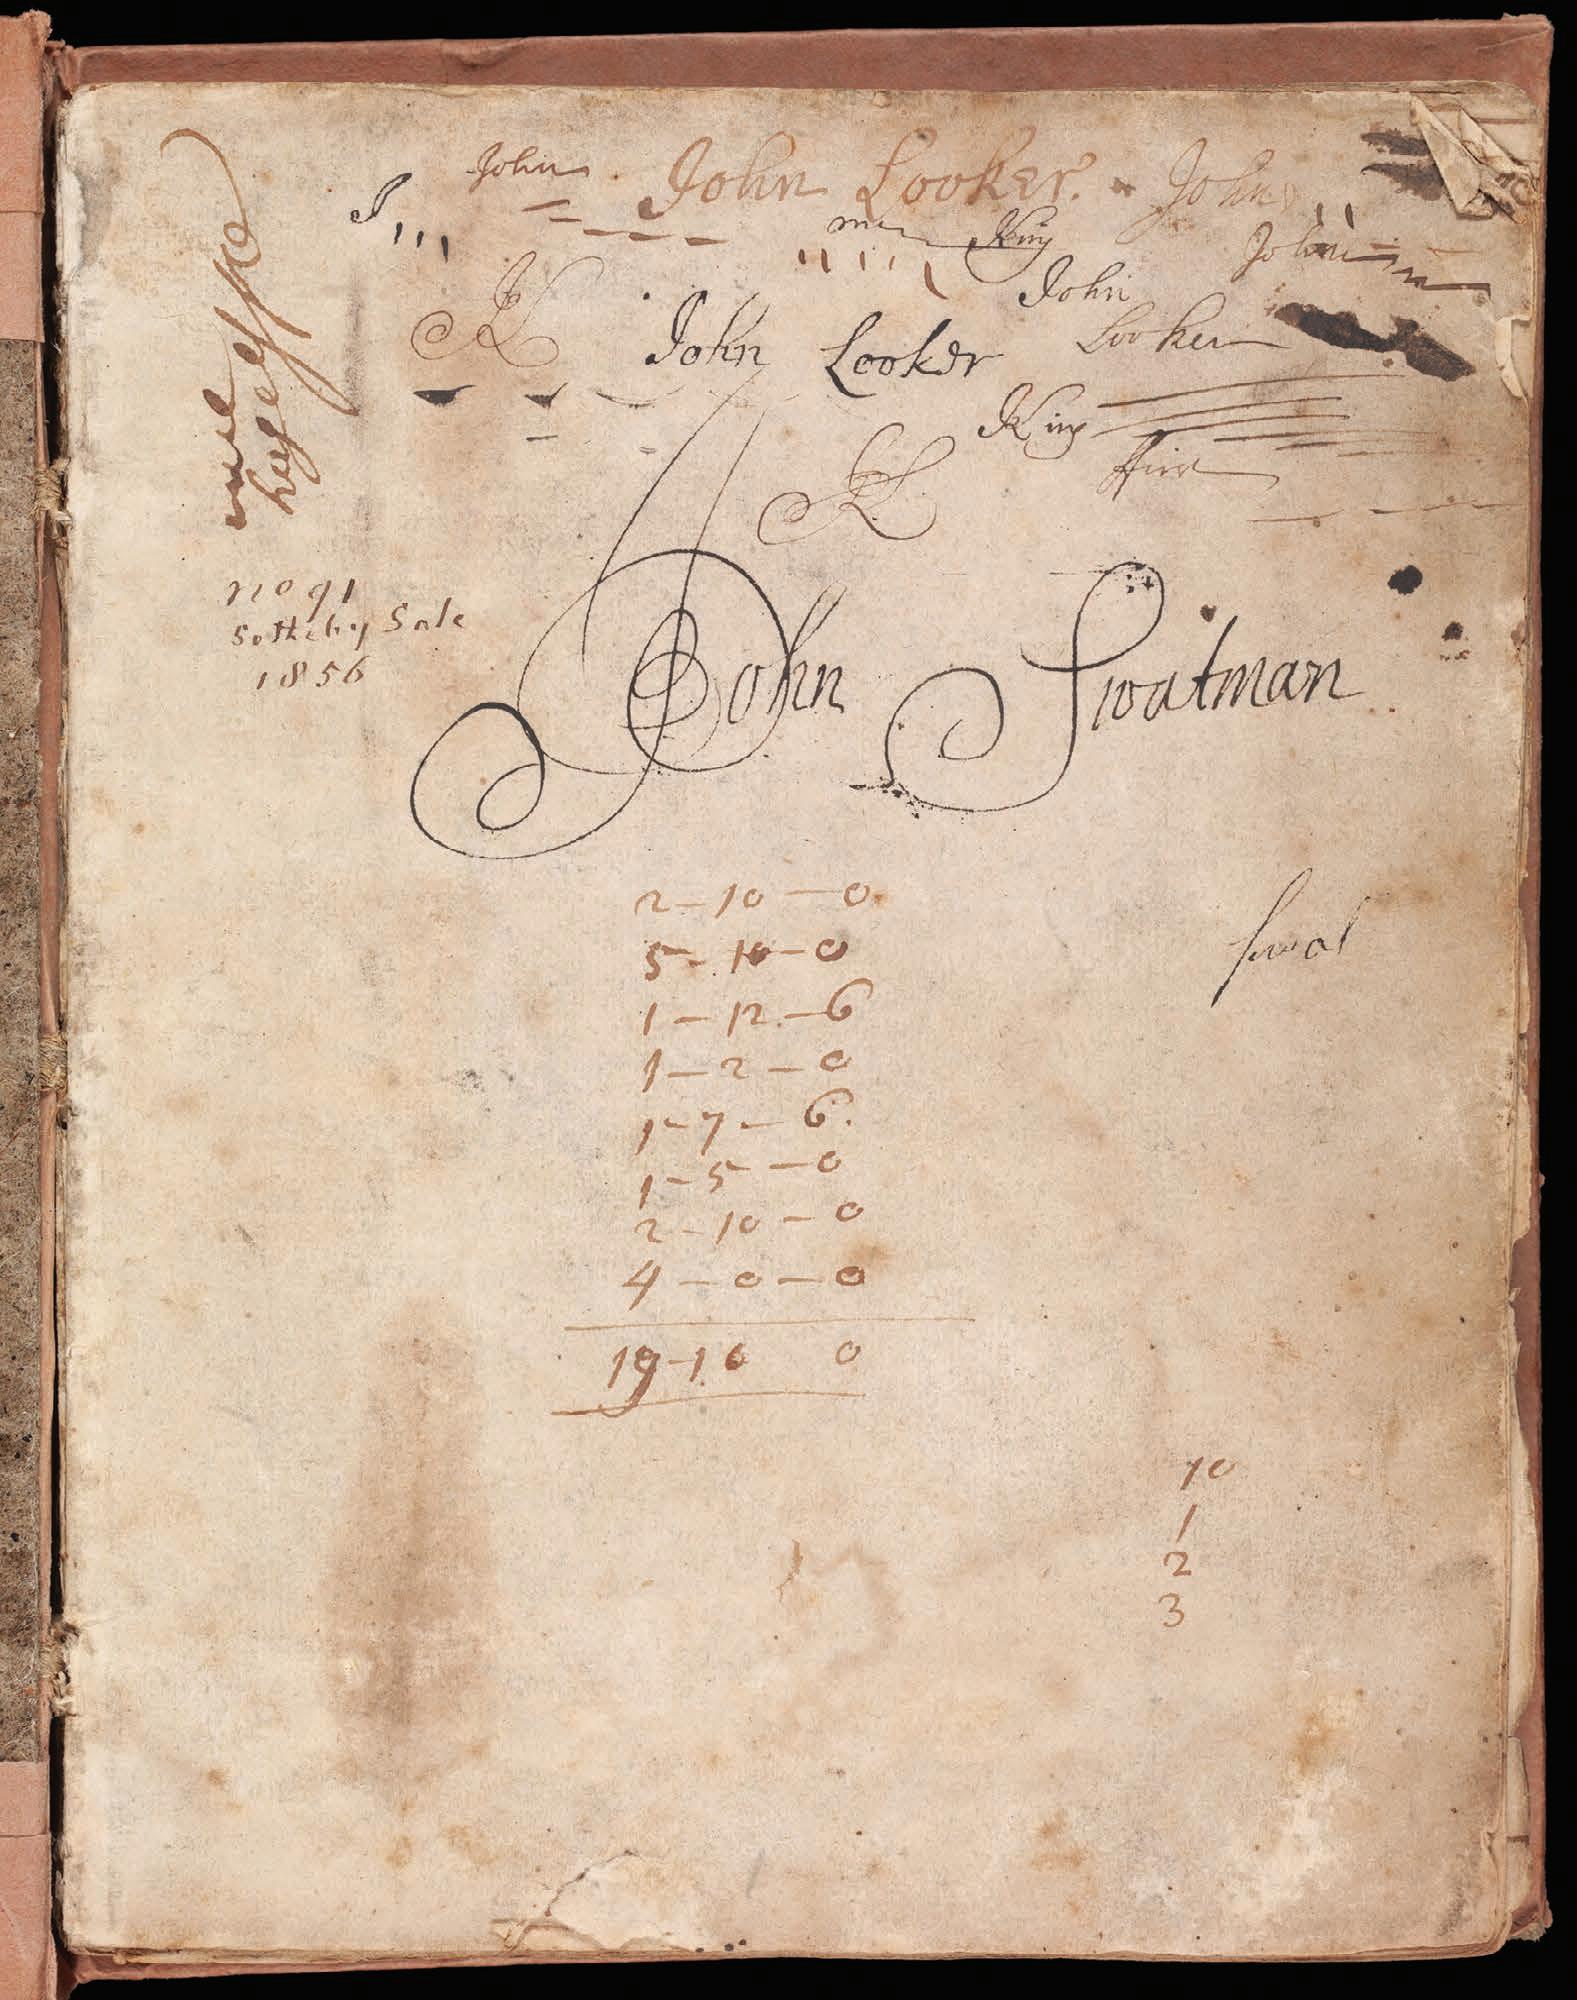 John John Looker. John
J
King
John
John
John Looker
Looker
King
no 91
Sotheby Sale
1856
John Swatman
2 - 10 - 0
5 - 10 - 0
swat
1 - 12 - 6
1 - 2 - 0
1 - 7 - 6.
1 - 5 - 0
2 - 10 - 0
4 - 0 - 0
19 - 16 0
10
1
2
3